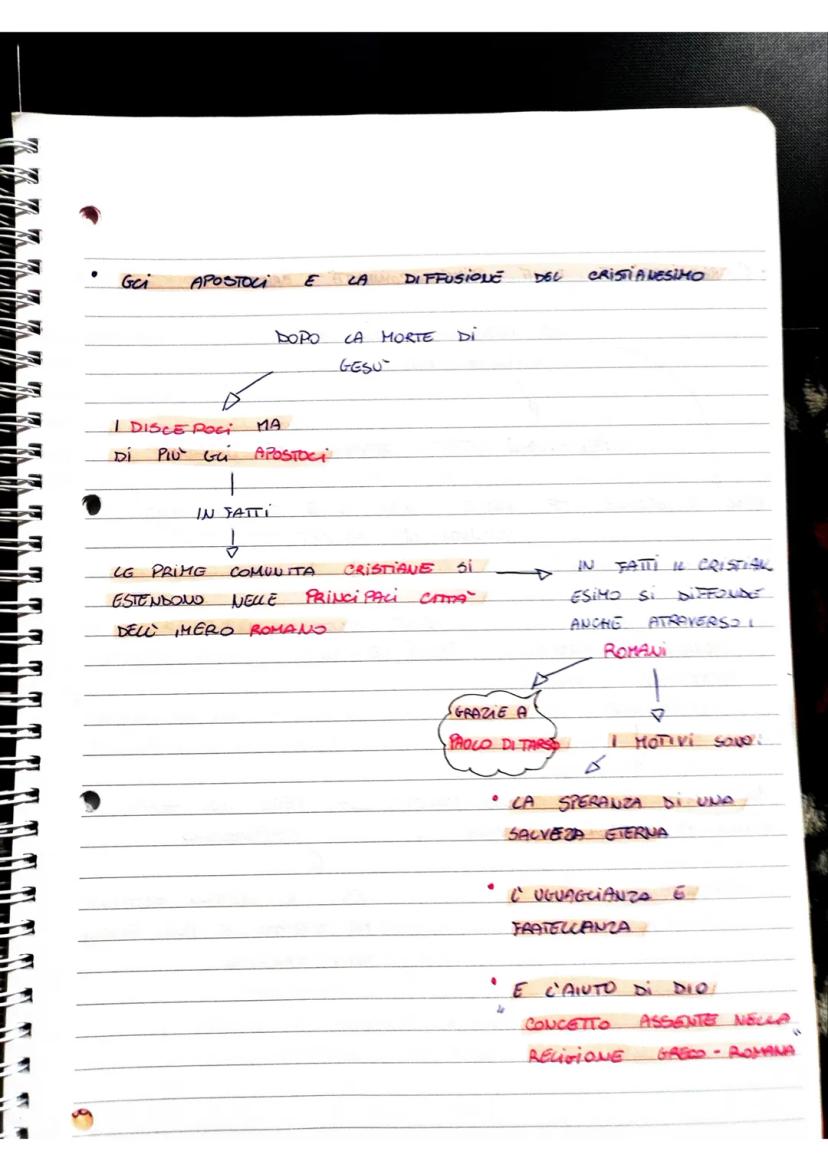 • GLI APOSTOLI E LA DIFFUSIONE DEL CRISTIANESIMO
DOPO LA MORTE DI
GESU`
I DISCEPOLI MA
DI PIU` GLI APOSTOLI
IN FATTI
LE PRIME COMUNITA CRISTIANE SI
ESTENDONO NELLE PRINCIPALI CITTA`
DELL' IMERO ROMANO
IN FATTI IL CRISTIAN
ESIMO SI DIFFONDE
ANCHE ATRAVERSO I
ROMANI
GRAZIE A
PAOLO DI TARSO
I MOTIVI SONO:
• LA SPERANZA DI UNA
SALVEZA ETERNA
• L' UGUAGLIANZA E
FRATELLANZA
• E L'AIUTO DI DIO
" CONCETTO ASSENTE NELLA
RELIGIONE GRECO - ROMANA "